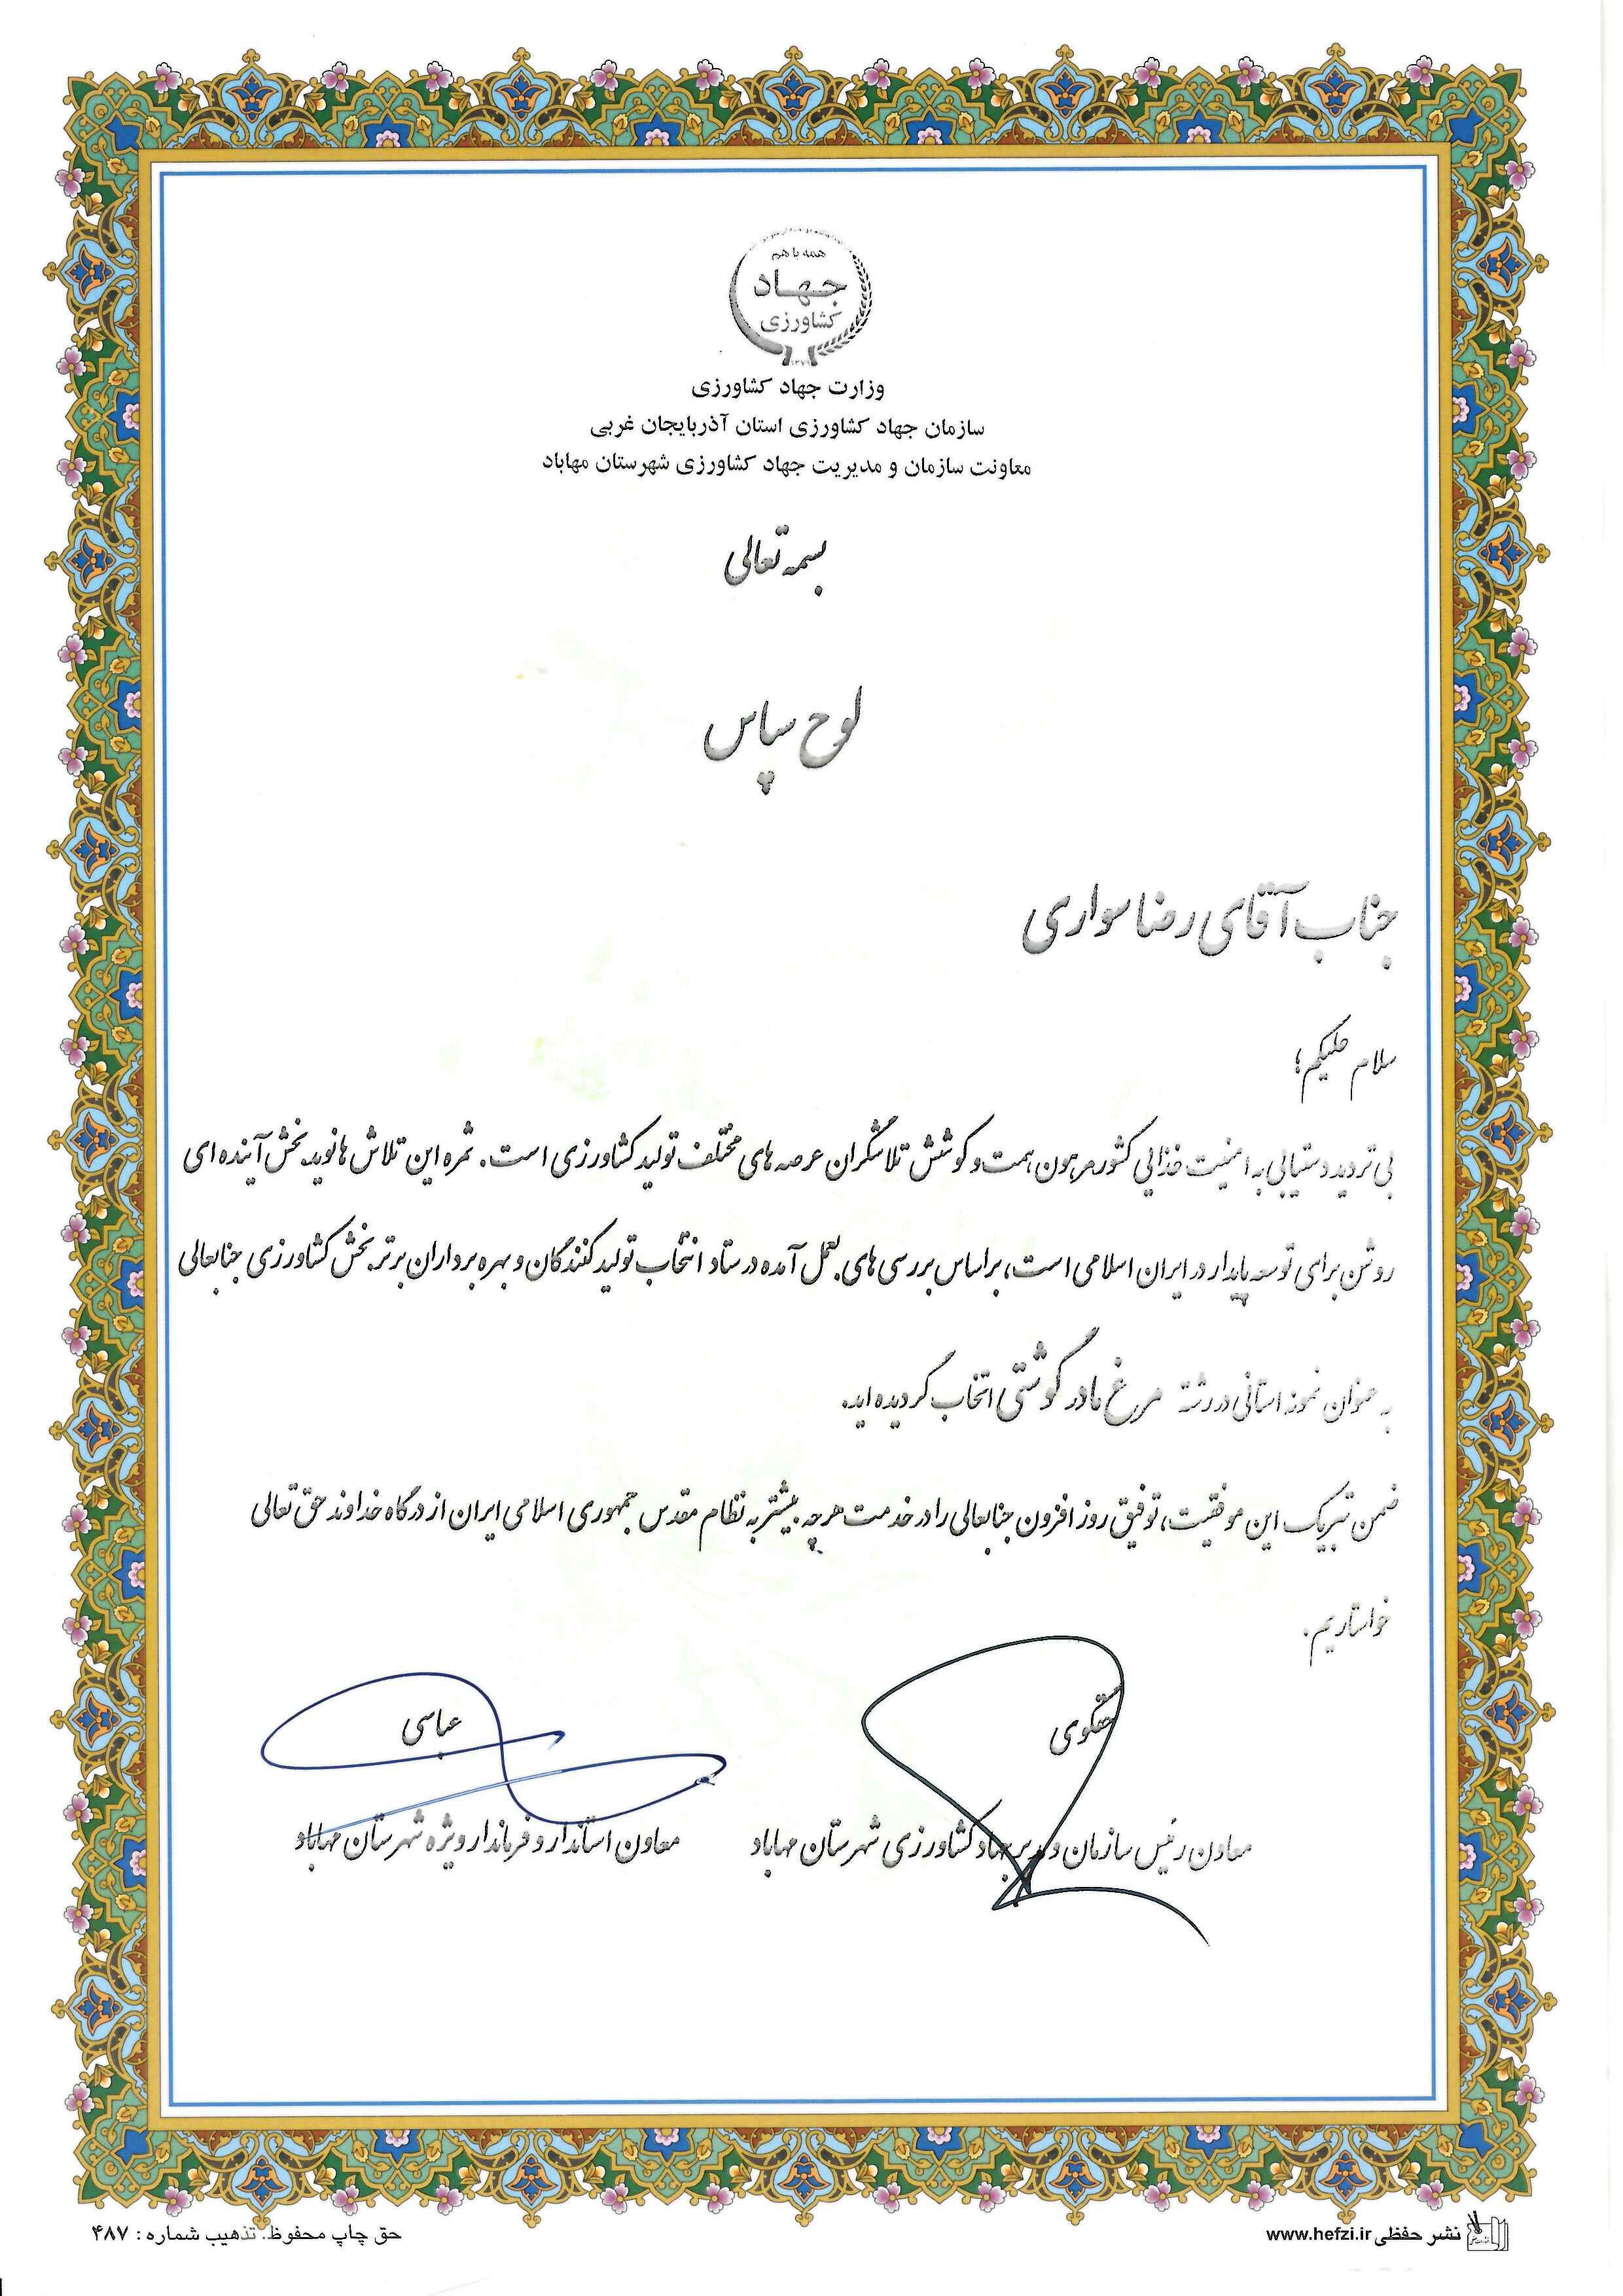 همه با هم
جهاد
کشاورزی
وزارت جهاد کشاورزی
سازمان جهاد کشاورزی استان آذربایجان غربی
معاونت سازمان و مدیریت جهاد کشاورزی شهرستان مهاباد
بسمه تعالی
لوح سپاس
جناب آقای رضا سواری
سلام علیکم؛
بی تردید دستیابی به امنیت غذایی کشور مرهون همت و کوشش تلاشگران عرصه های مختلف تولید کشاورزی است. ثمره این تلاش ها نوید بخش آینده ای
روشن برای توسعه پایدار در ایران اسلامی است، براساس بررسی های بعمل آمده در ستاد انتخاب تولید کنندگان و بهره برداران برتر بخش کشاورزی جنابعالی
به عنوان نمونه استانی در رشته مرغ مادر گوشتی انتخاب گردیده اید.
ضمن تبریک این موفقیت، توفیق روز افزون جنابعالی را در خدمت هر چه بیشتر به نظام مقدس جمهوری اسلامی ایران از درگاه خداوند حق تعالی
خواستاریم.
عباسی
معاون رئیس سازمان و مدیر جهاد کشاورزی شهرستان مهاباد
معاون استاندار و فرماندار ویژه شهرستان مهاباد
نشر حفظی www.hefzi.ir
حق چاپ محفوظ. تذهیب شماره : ۴۸۷